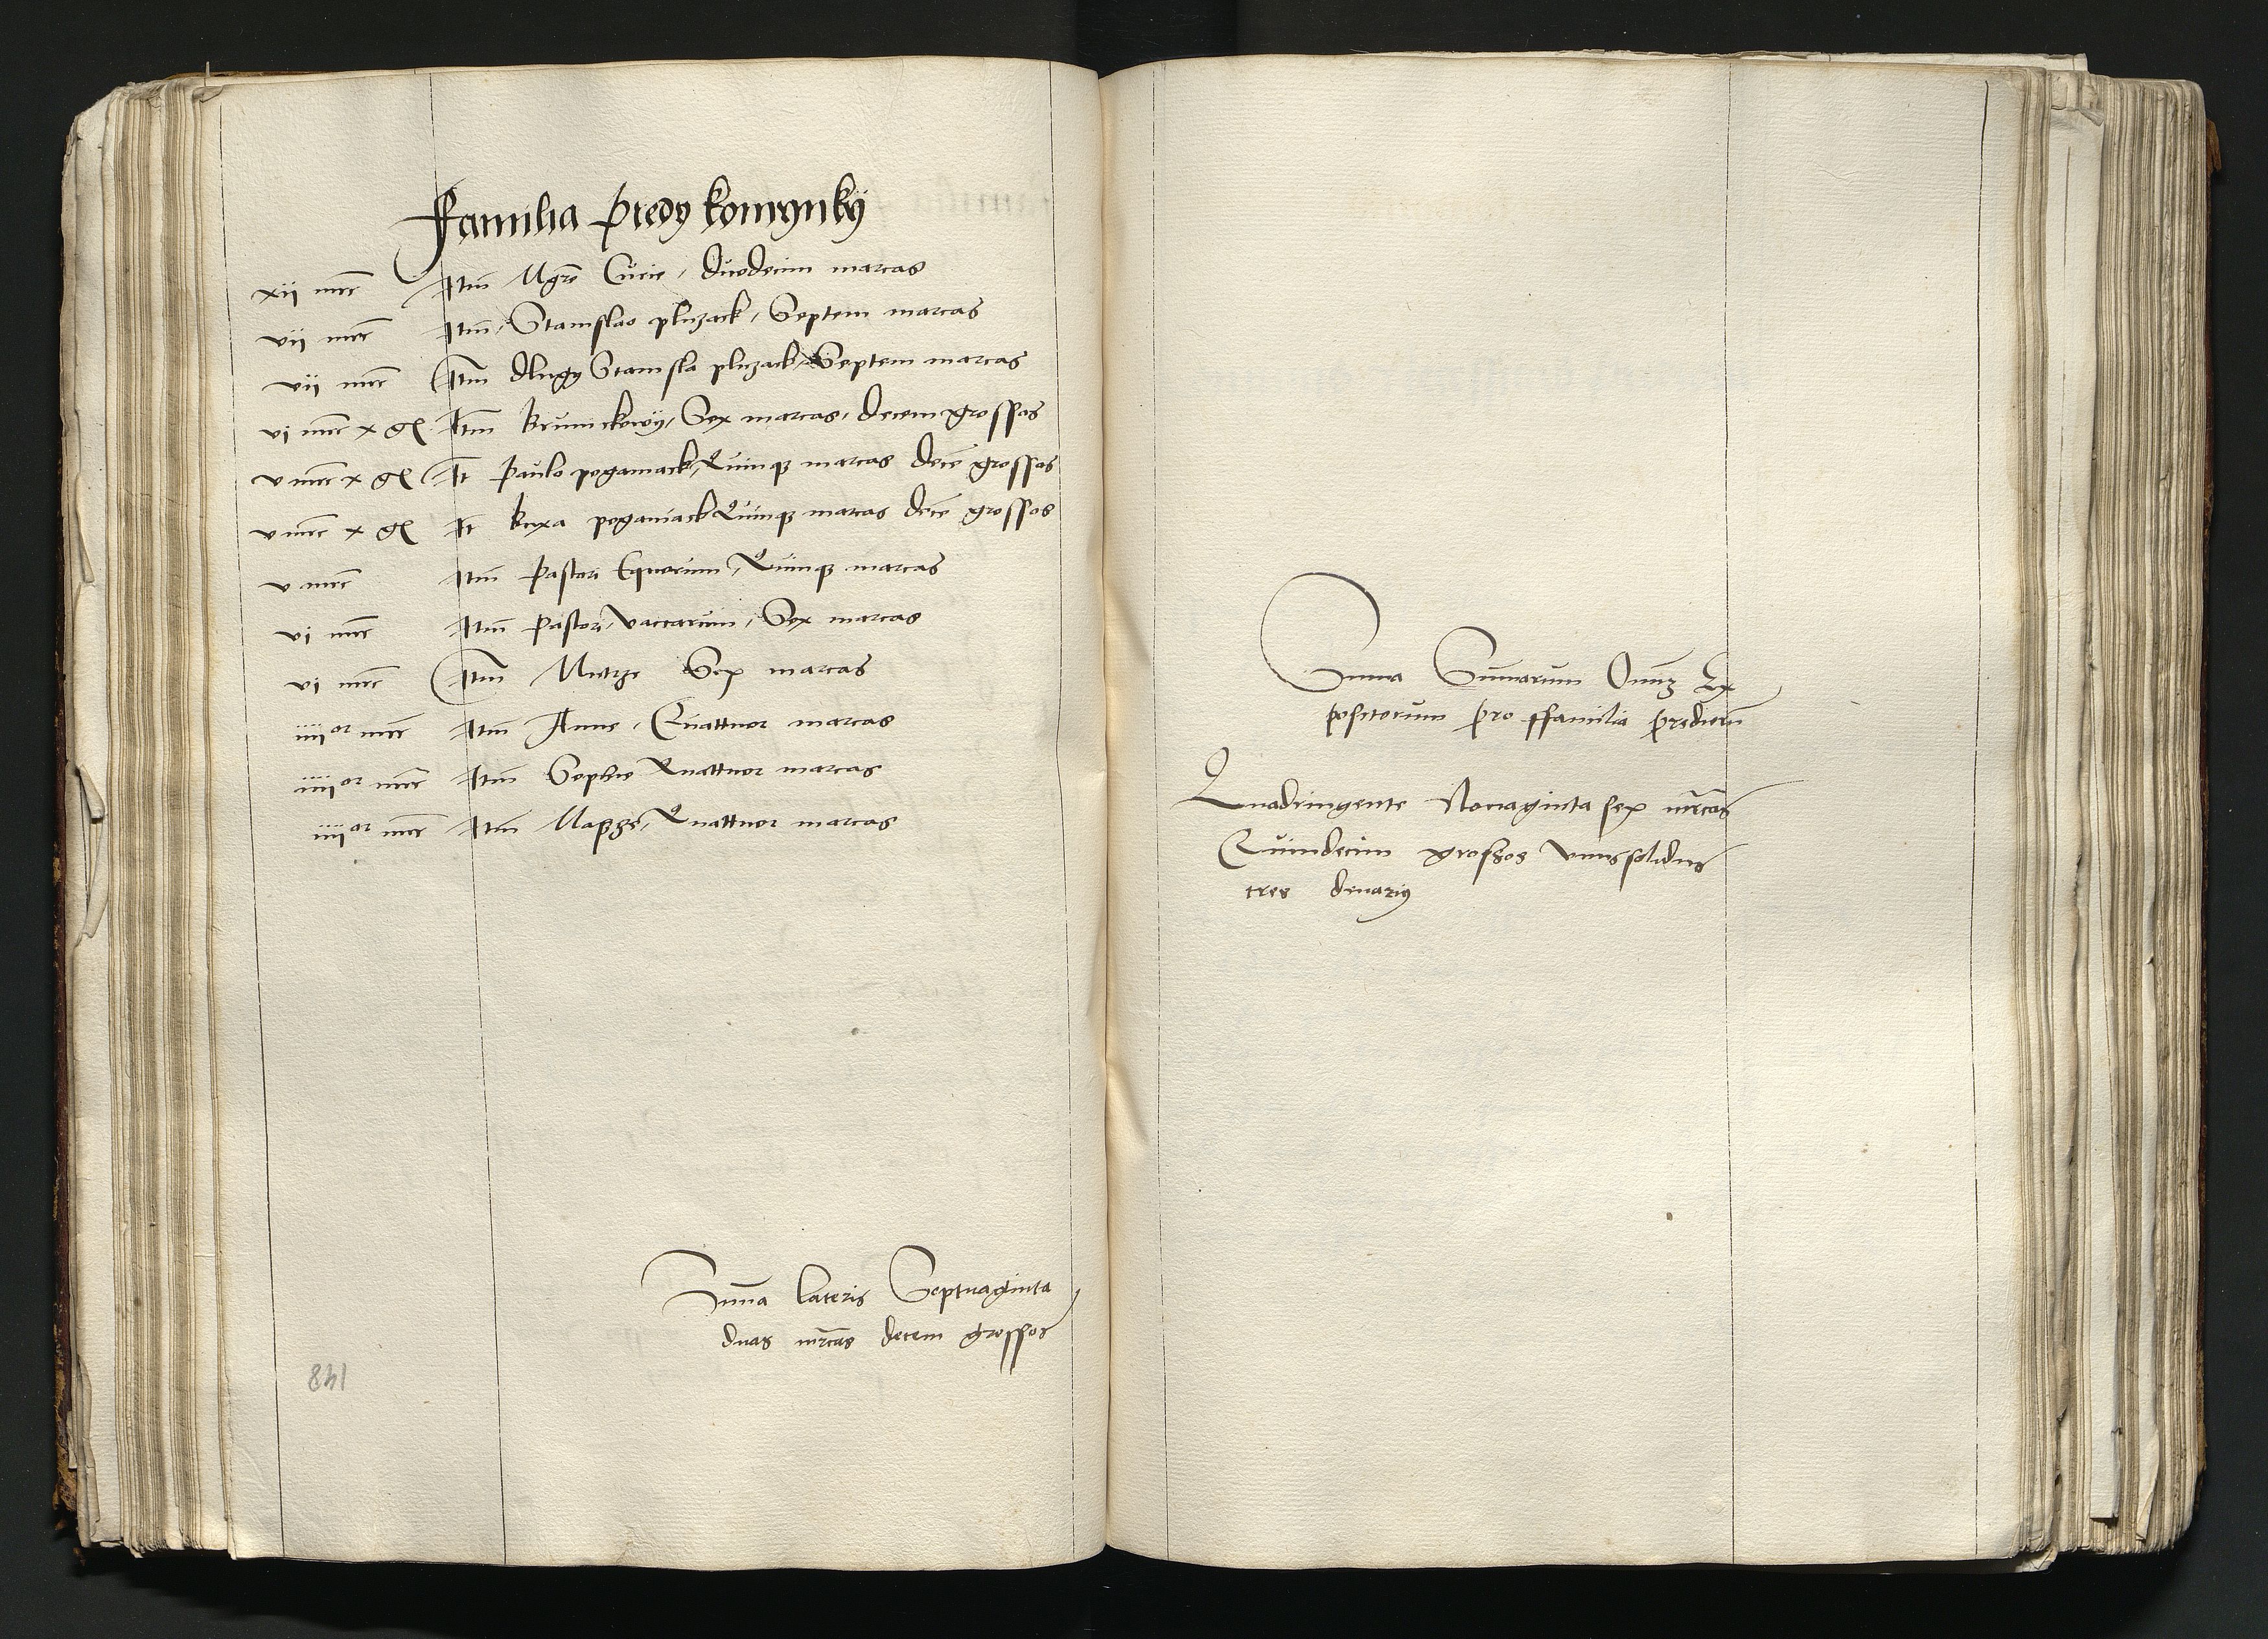 Familia predy komynky
xii mrc Itm Mgro Curie, duodecim marcas
vii mrc Itm, Stanislao pluzack, Septem marcas
vii mrc Itm dlugy Stanisla pluzack, Septem marcas
vi mrc x gr Itm Krunickowy, Sex marcas, decem grossos
v mrc x gr It Paulo poganiack, Quinqz marcas dece grossos
v mrc x gr It kuxa poganiack Quinqz marcas dece grossos
v mrc Itm Pastori Equorum, Quinqz marcas
vi mrc Itm Pastori, vaccarum, Sex marcas
vi mrc Itm Sex marcas
iiii or mrc Itm Anne, Quattuor marcas
iiii or mrc Itm Sophie Quattuor marcas
iiii or mrc Itm Quattuor marcas
Suma lateris Septuaginta
duas mrcas decem grossos
148
Suma Sumarum Omnz Ex
positorum pro ffamilia prediorum
Quadringente Nonaginta sex mrcas
Quindecim grossos vnus solidus
tres denarius